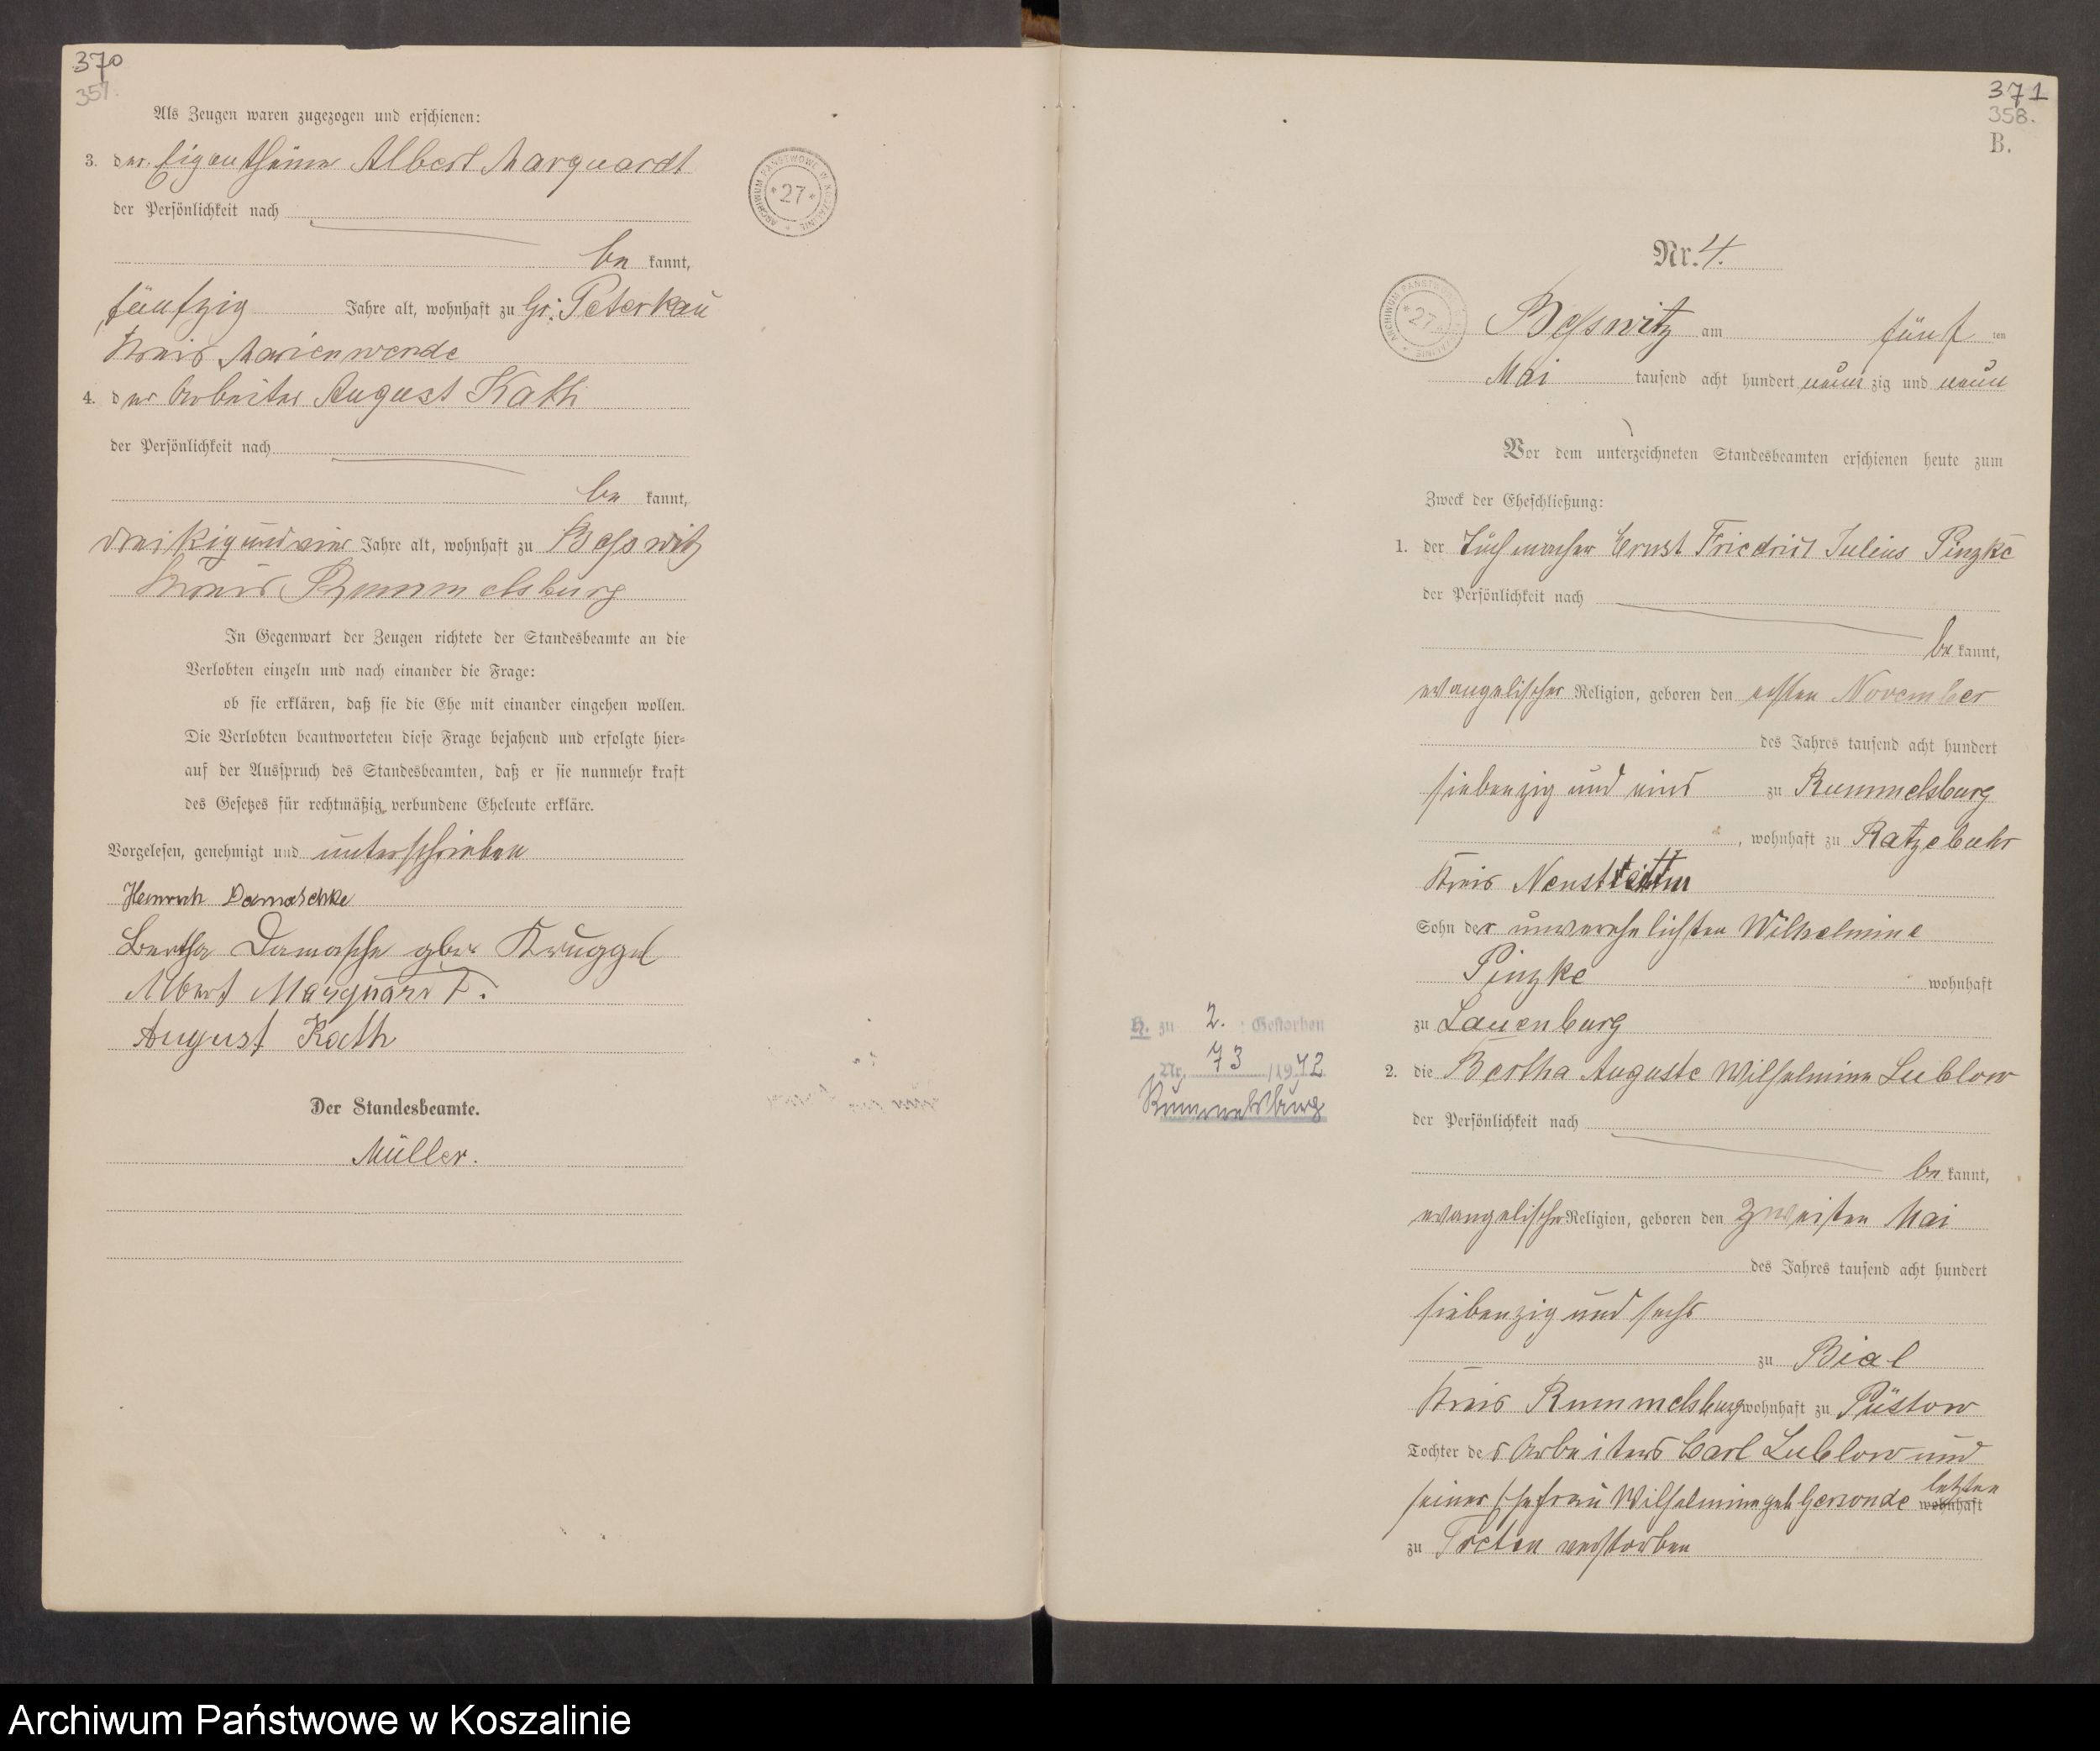 370
357.
Als Zeugen waren zugezogen und erschienen:
3. der Eigenthümer Albert Marquardt
der Persönlichkeit nach
be kannt,
fünfzig Jahre alt, wohnhaft zu Gr. Peterkau
Kreis Marienwerde
4. der Arbeiter August Kath
der Persönlichkeit nach
be kannt,
dreißigundvier Jahre alt, wohnhaft zu Besswitz
Kreis Rummelsburg
In Gegenwart der Zeugen richtete der Standesbeamte an die
Verlobten einzeln und nach einander die Frage:
ob sie erklären, daß sie die Ehe mit einander eingehen wollen.
Die Verlobten beantworteten diese Frage bejahend und erfolgte hier=
auf der Ausspruch des Standesbeamten, daß er sie nunmehr kraft
des Gesetzes für rechtmäßig verbundene Eheleute erkläre.
Vorgelesen, genehmigt und unterschrieben
Heinrich Damaschke
Bertha Damaschke gbr. Kruggel
Albert Marquardt.
August Kath
Der Standesbeamte.
Müller.
ARCHIWUM PAŃSTWOWE W KOSZALINIE * 27 *
371
358.
B.
Nr. 4.
ARCHIWUM PAŃSTWOWE W KOSZALINIE * 27 *
Besswitz am fünf ten
Mai tausend acht hundert neun zig und neun
Vor dem unterzeichneten Standesbeamten erschienen heute zum
Zweck der Eheschließung:
1. der Tuchmacher Ernst Friedrich Julius Pinzke
der Persönlichkeit nach
be kannt,
evangelischer Religion, geboren den ersten November
des Jahres tausend acht hundert
siebenzig und eins zu Rummelsburg
, wohnhaft zu Ratzebuhr
Kreis Neustettin
Sohn der unverehelichten Wilhelmine
Pinzke wohnhaft
zu Lauenburg
2. die Bertha Auguste Wilhelmine Lublow
der Persönlichkeit nach
be kannt,
evangelischer Religion, geboren den zweiten Mai
des Jahres tausend acht hundert
siebenzig und sechs
zu Bial
Kreis Rummelsburg wohnhaft zu Püstow
Tochter des Arbeiters Carl Lublow und
letztere
seiner Ehefrau Wilhelmine geb Gersonde wohnhaft
zu Treten verstorben
H. zu 2. : Gestorben
Nr. 73 /1942
Rummelsburg
Archiwum Państwowe w Koszalinie